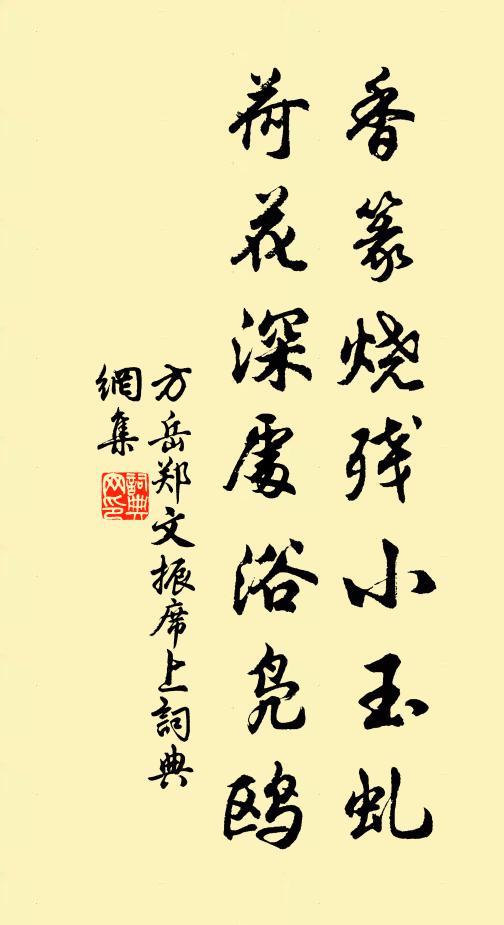 香篆烧残小玉虬
荷花深處浴凫鸥
方岳郑文振席上詞典
網集
詞典
网印